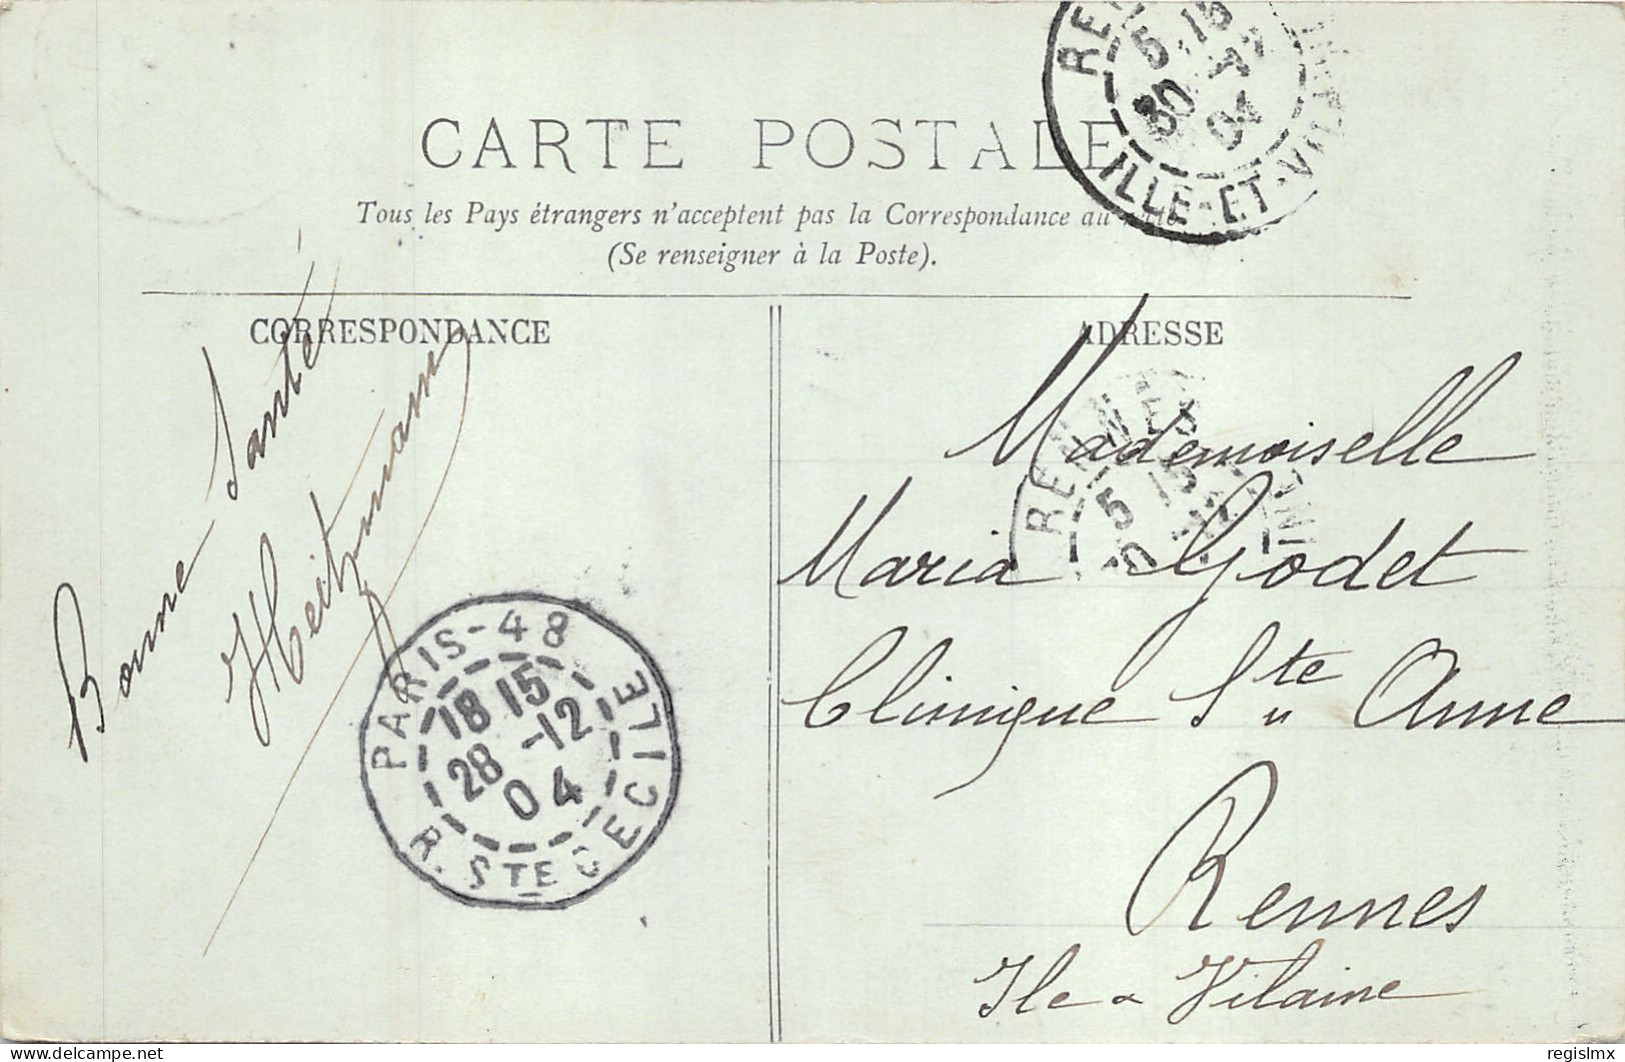 CARTE POSTALE
Tous les Pays étrangers n'acceptent pas la Correspondance au
(Se renseigner à la Poste).
CORRESPONDANCE
ADRESSE
Bonne Santé
Heitzmann
Mademoiselle
Maria Godet
Clinique Ste Anne
Rennes
Ile & Vilaine
PARIS-48
18 15
28 -12
04
R. STE CECILE
5 15
30
04
ILLE-ET-VIL
RENNES
5 15
delcampe.net
regislmx